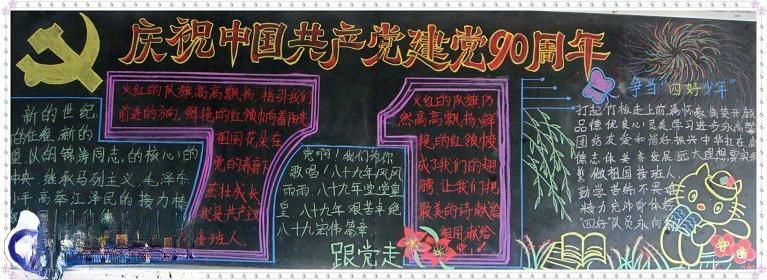 庆祝中国共产党建党90周年
新的世纪
的征程,新的
望,以胡锦涛同志,的核心的
中央,继承马列主义,毛泽东
小平高举江泽民的接力棒
71
火红的队旗高高飘扬,指引我们
前进的方向,鲜艳的红领巾向着阳光
祖国花朵在
党的春雨下
茁壮成长
我是共产主义
接班人
党啊!我们为你
歌唱!八十九年风风
雨雨,八十九年堂堂皇
皇,八十九年艰苦卓绝
八十九宏伟篇章
跟党走
火红的队旗仍
然高高飘扬,鲜
艳的红领巾
成了我们的翅
膀,让我们把
最美的诗献给
祖国献给
党!
争当"四好少年"
打起竹板走上前,
品德优良心灵美学习进步
团结友爱和谐好振兴中华
德志体美
做祖国接班人
勤学苦练不畏难
精力充沛身体
"四好"队员永向前